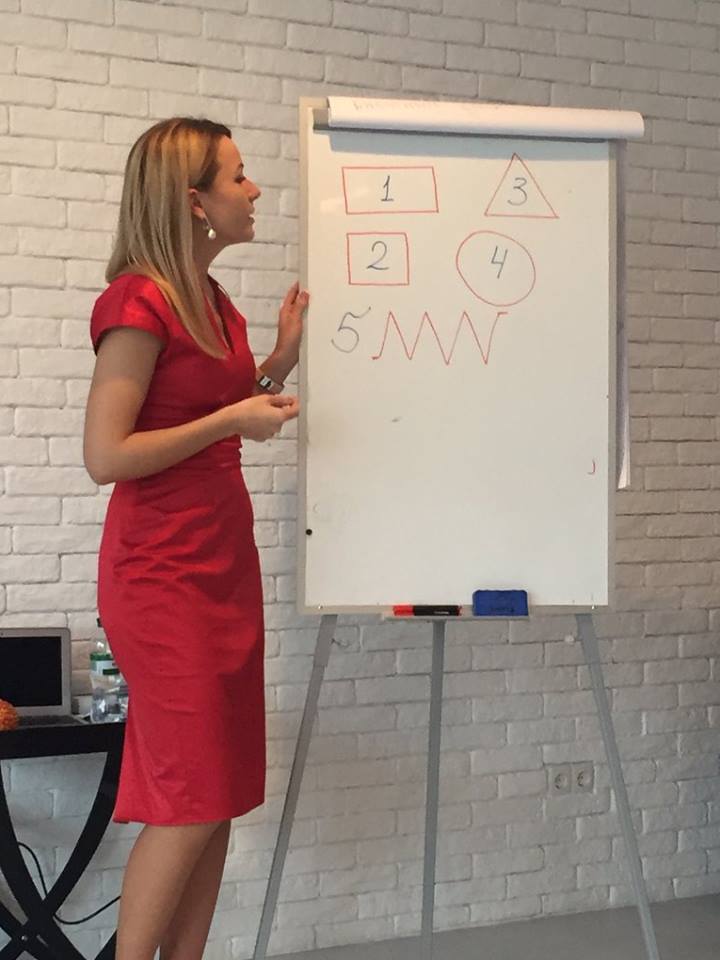 1
3
2
4
5